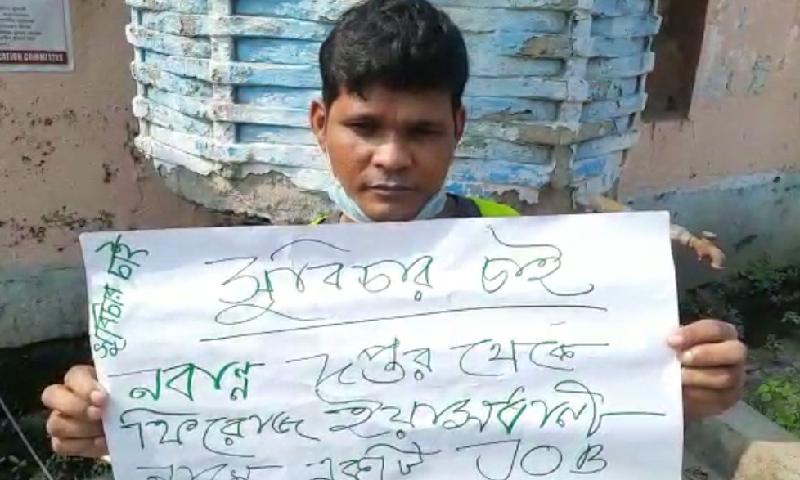 CATION COMMITTEE
সুবিচার চাই
সুবিচার চাই
নবান্ন দপ্তর থেকে
ফিরোজ ইয়াসদানী
নামে একটি JOB